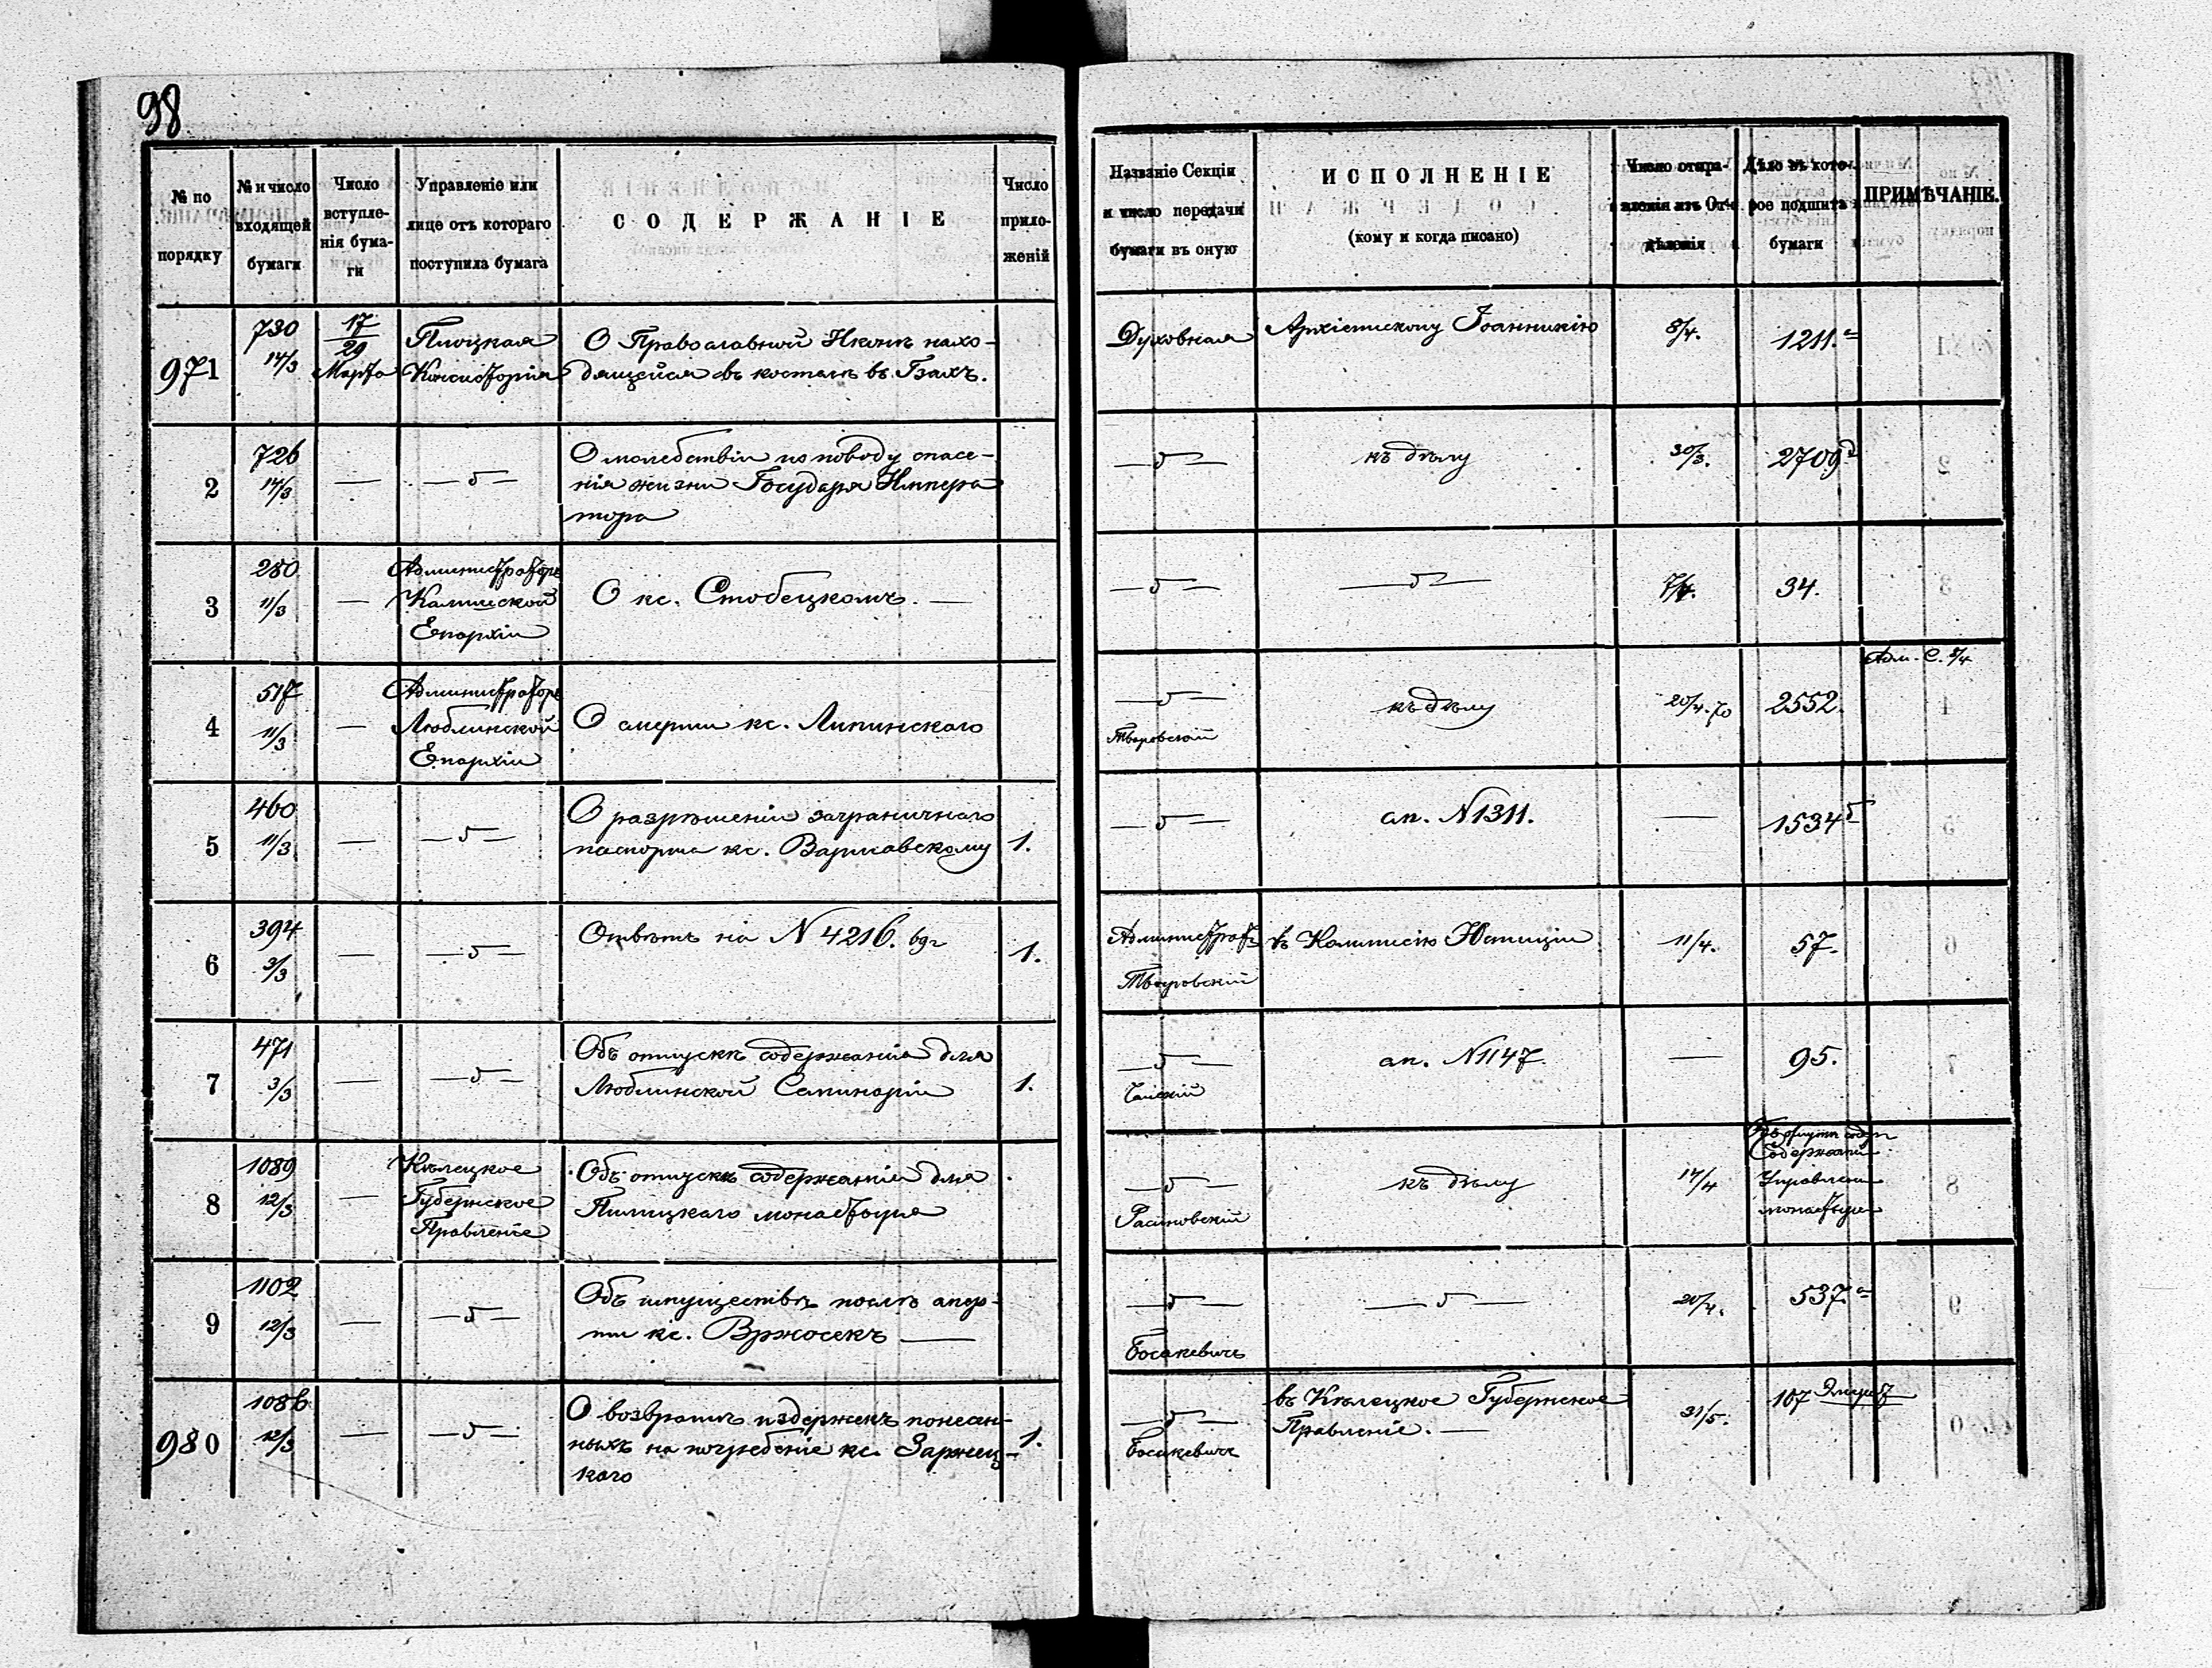 98
№ по порядку
№ и число входящей бумаги
Число вступле-нія бума-ги
Управленіе или лице отъ котораго поступила бумага
СОДЕРЖАНІЕ
Число прило-женій
Названіе Секціи и число передачи бумаги въ оную
ИСПОЛНЕНІЕ
(кому и когда писано)
Число отпра-вленія изъ От-дѣленія
Дѣло въ кото-рое подшита бумаги
ПРИМѢЧАНІЕ.
971
730
14/3
17/29 Марта
Плоцкая
Консисторія
О Православной Иконѣ нахо-
дящейся въ костелѣ въ
Духовная
Архіепискому Іоанникію
8/4.
1211. а
2
726
14/3
—
— " —
О молебствіи по поводу спасе-
нія жизни Государя Импера-
тора
— " —
къ дѣлу
30/3.
2709 д
3
280
11/3
—
Администраторъ
Калишской
Епархіи
О кс. Стобецкомъ. —
— " —
— " —
7/4.
34.
4
517
11/3
—
Администраторъ
Люблинской
Епархіи
О смерти кс. Липинскаго
— " —
Тваровскій
къ дѣлу
20/4. 70
2552.
Адм. С. 5/4
5
460
11/3
—
— " —
О разрѣшеніи заграничнаго
паспорта кс. Варшавскому
1.
— " —
ап. N 1311.
—
1534 б
6
394
3/3
—
— " —
Отвѣтъ на N 4216. 69 г
1.
Администрат.
Тваровскій
въ Коммисію Юстиціи
11/4.
57.
7
471
3/3
—
— " —
Объ отпускѣ содержанія для
Люблинской Семинаріи
1.
— " —
ап. N 1147.
—
95.
8
1089
12/3
—
Кѣлецкое
Губернское
Правленіе
Объ отпускѣ содержанія для
Пилицкаго монастыря
— " —
къ дѣлу
17/4
Содержаніи
монастыря
9
1102
12/3
—
— " —
Объ имуществѣ послѣ смер-
ти кс. Вржосекъ —
— " —
Босакевичъ
— " —
20/4.
537. а
980
1086
12/3
—
— " —
О возвратѣ издержекъ понесен-
ныхъ на погребеніе кс. Зарнец-
каго
1.
— " —
Босакевичъ
въ Кѣлецкое Губернское
Правленіе. —
31/5.
107